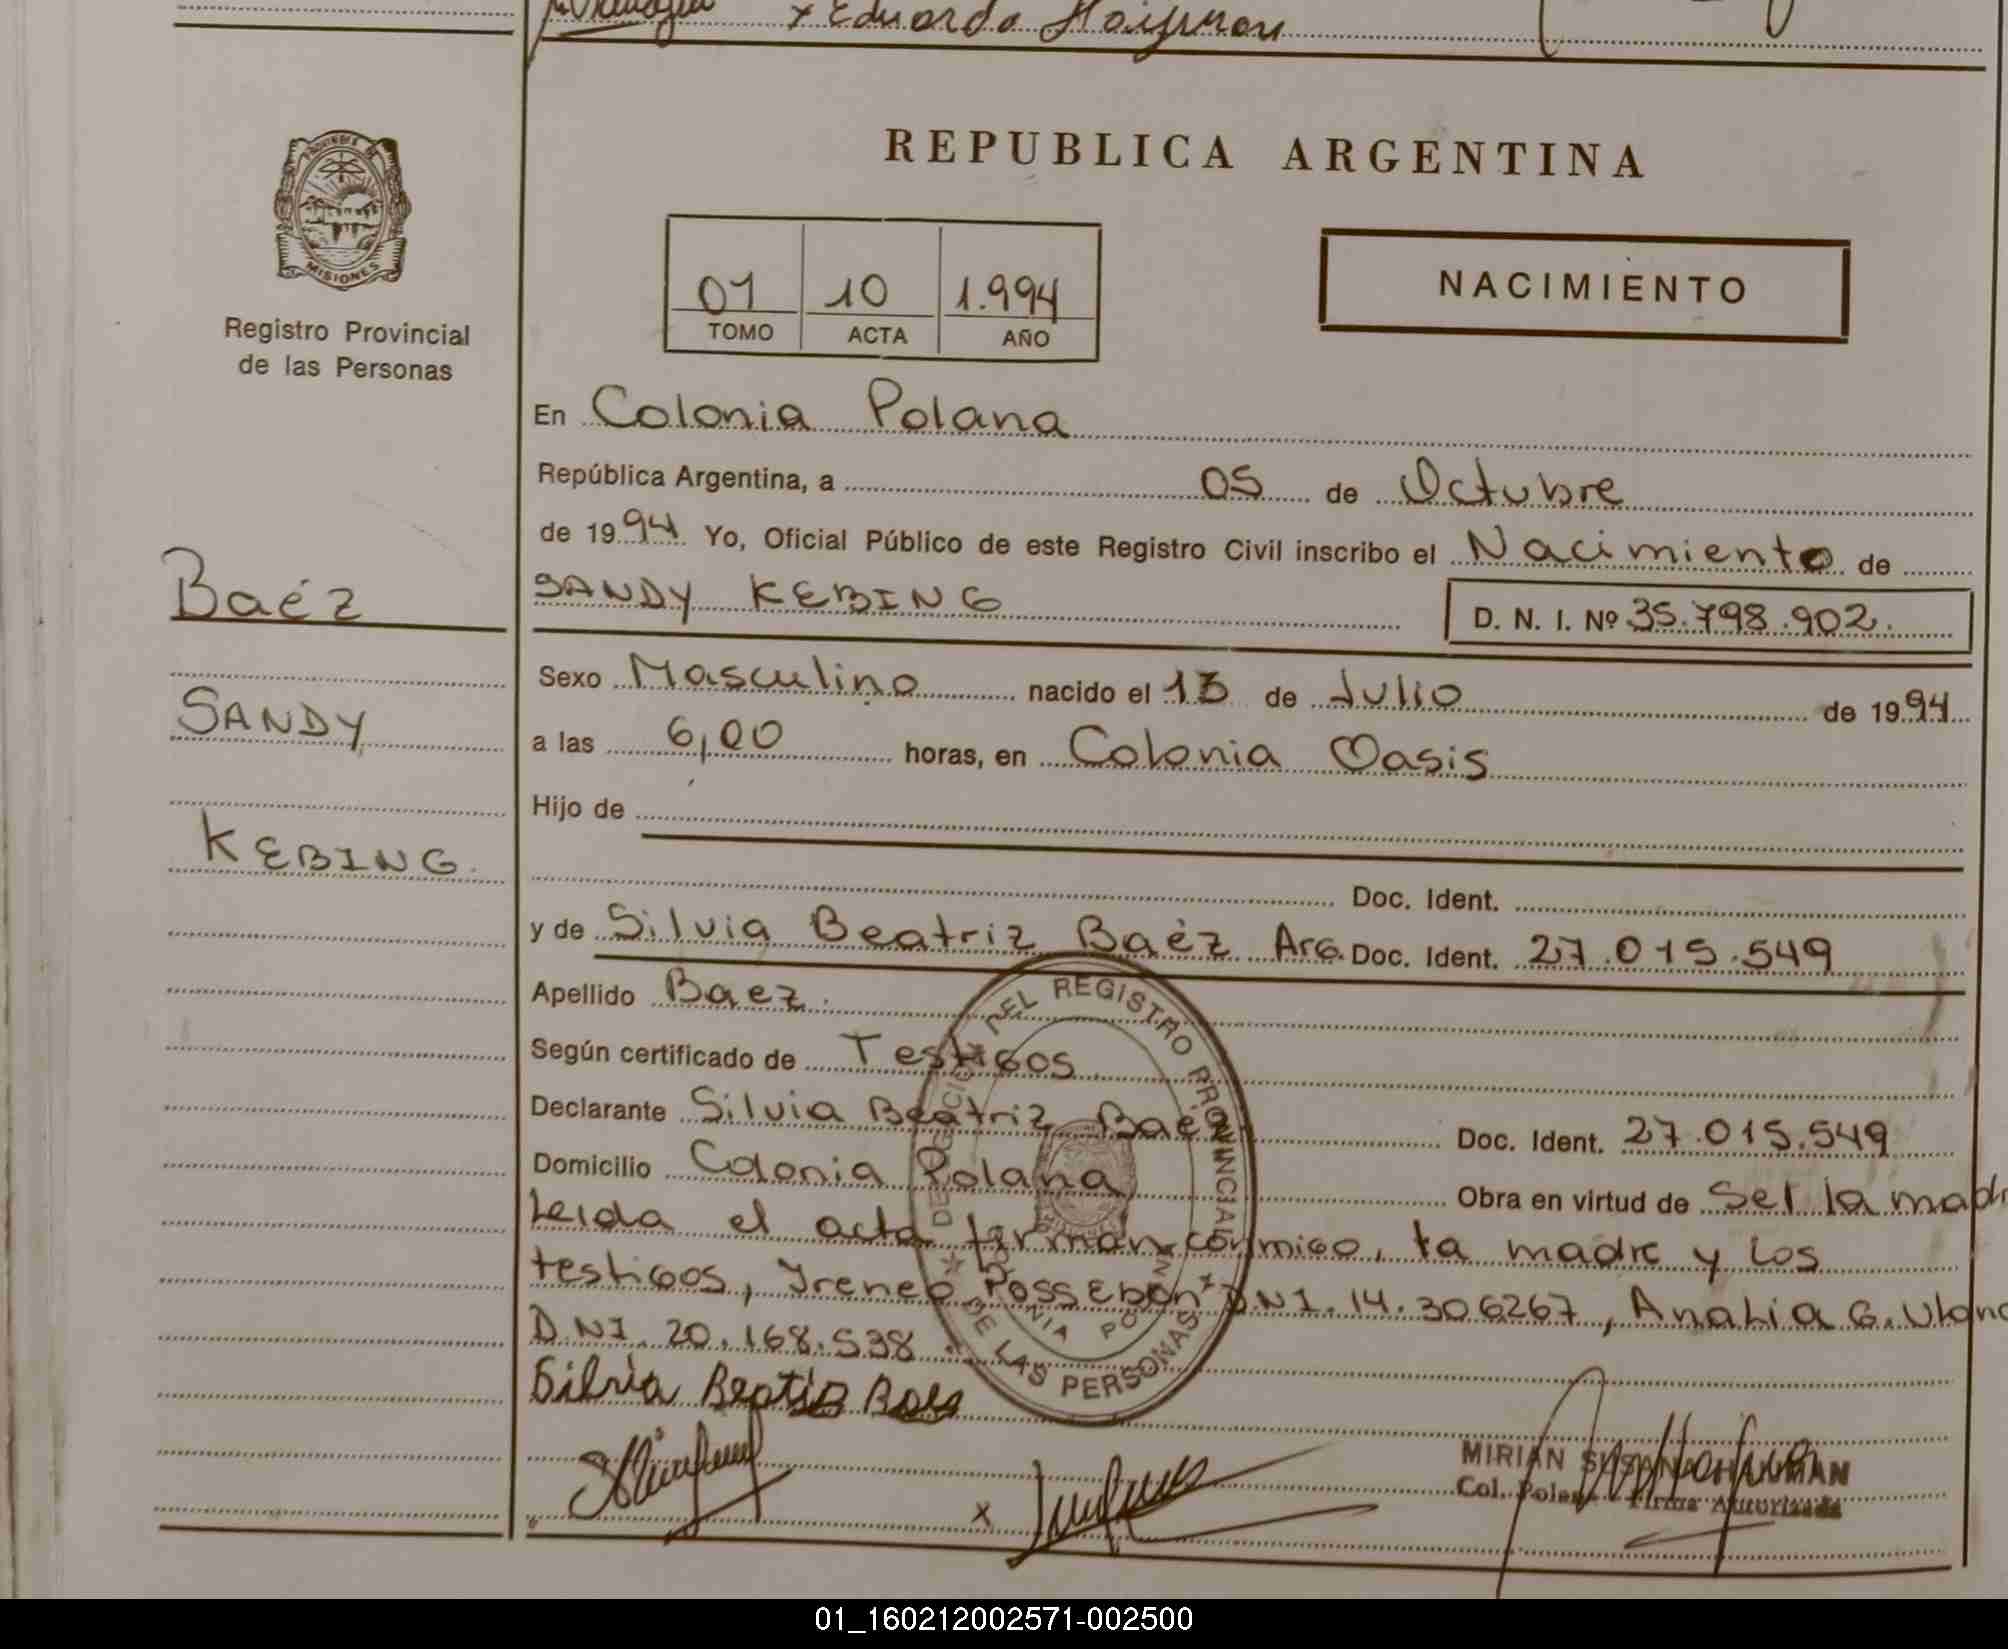 x Eduardo Haiymon
PROVINCIA DE
MISIONES
Registro Provincial
de las Personas
REPUBLICA ARGENTINA
01 10 1.994
TOMO ACTA AÑO
NACIMIENTO
En Colonia Polana
República Argentina, a 05 de Octubre
de 1994 Yo, Oficial Público de este Registro Civil inscribo el Nacimiento de
Baéz
SANDY KEBING D. N. I. Nº 35.798.902.
Sexo Masculino nacido el 13 de Julio de 1994
SANDY
a las 6,00 horas, en Colonia Oasis
Hijo de
KEBING.
Doc. Ident.
y de Silvia Beatriz Baéz Arg. Doc. Ident. 27.015.549
Apellido Baez.
Según certificado de Testigos
Declarante Silvia Beatriz Baez Doc. Ident. 27.015.549
Domicilio Colonia Polana Obra en virtud de Ser la madr
Leida el acta firman conmigo, la madre y los
testigos, Ireneo Possebon D.N.I. 14.306267, Analia G.
D.N.I. 20.168.538
DEL REGISTRO PROVINCIAL DE LAS PERSONAS
Silvia Beatriz Baes
x
MIRIAN SUSANA
Col. Polana - Firma Autorizada
01_160212002571-002500